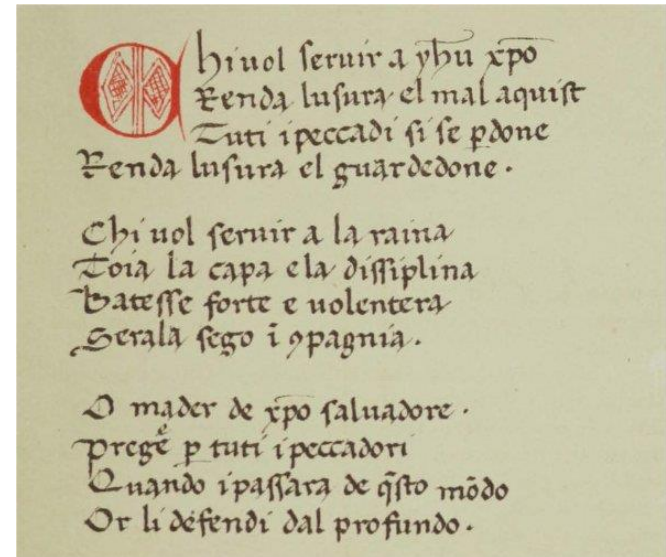 Chi uol seruir a yhu xpo
Renda lusura el mal aquist
Tuti i peccadi si se pdone
Renda lusura el guardedone.
Chi uol seruir a la raina
Toia la capa e la dissiplina
Batesse forte e uolentera
Serala sego ĩ ꝯpagnia.
O mader de xpo saluadore.
Pregẽ p tuti i peccadori
Quando i passara de q̃sto mõdo
Or li defendi dal profundo.